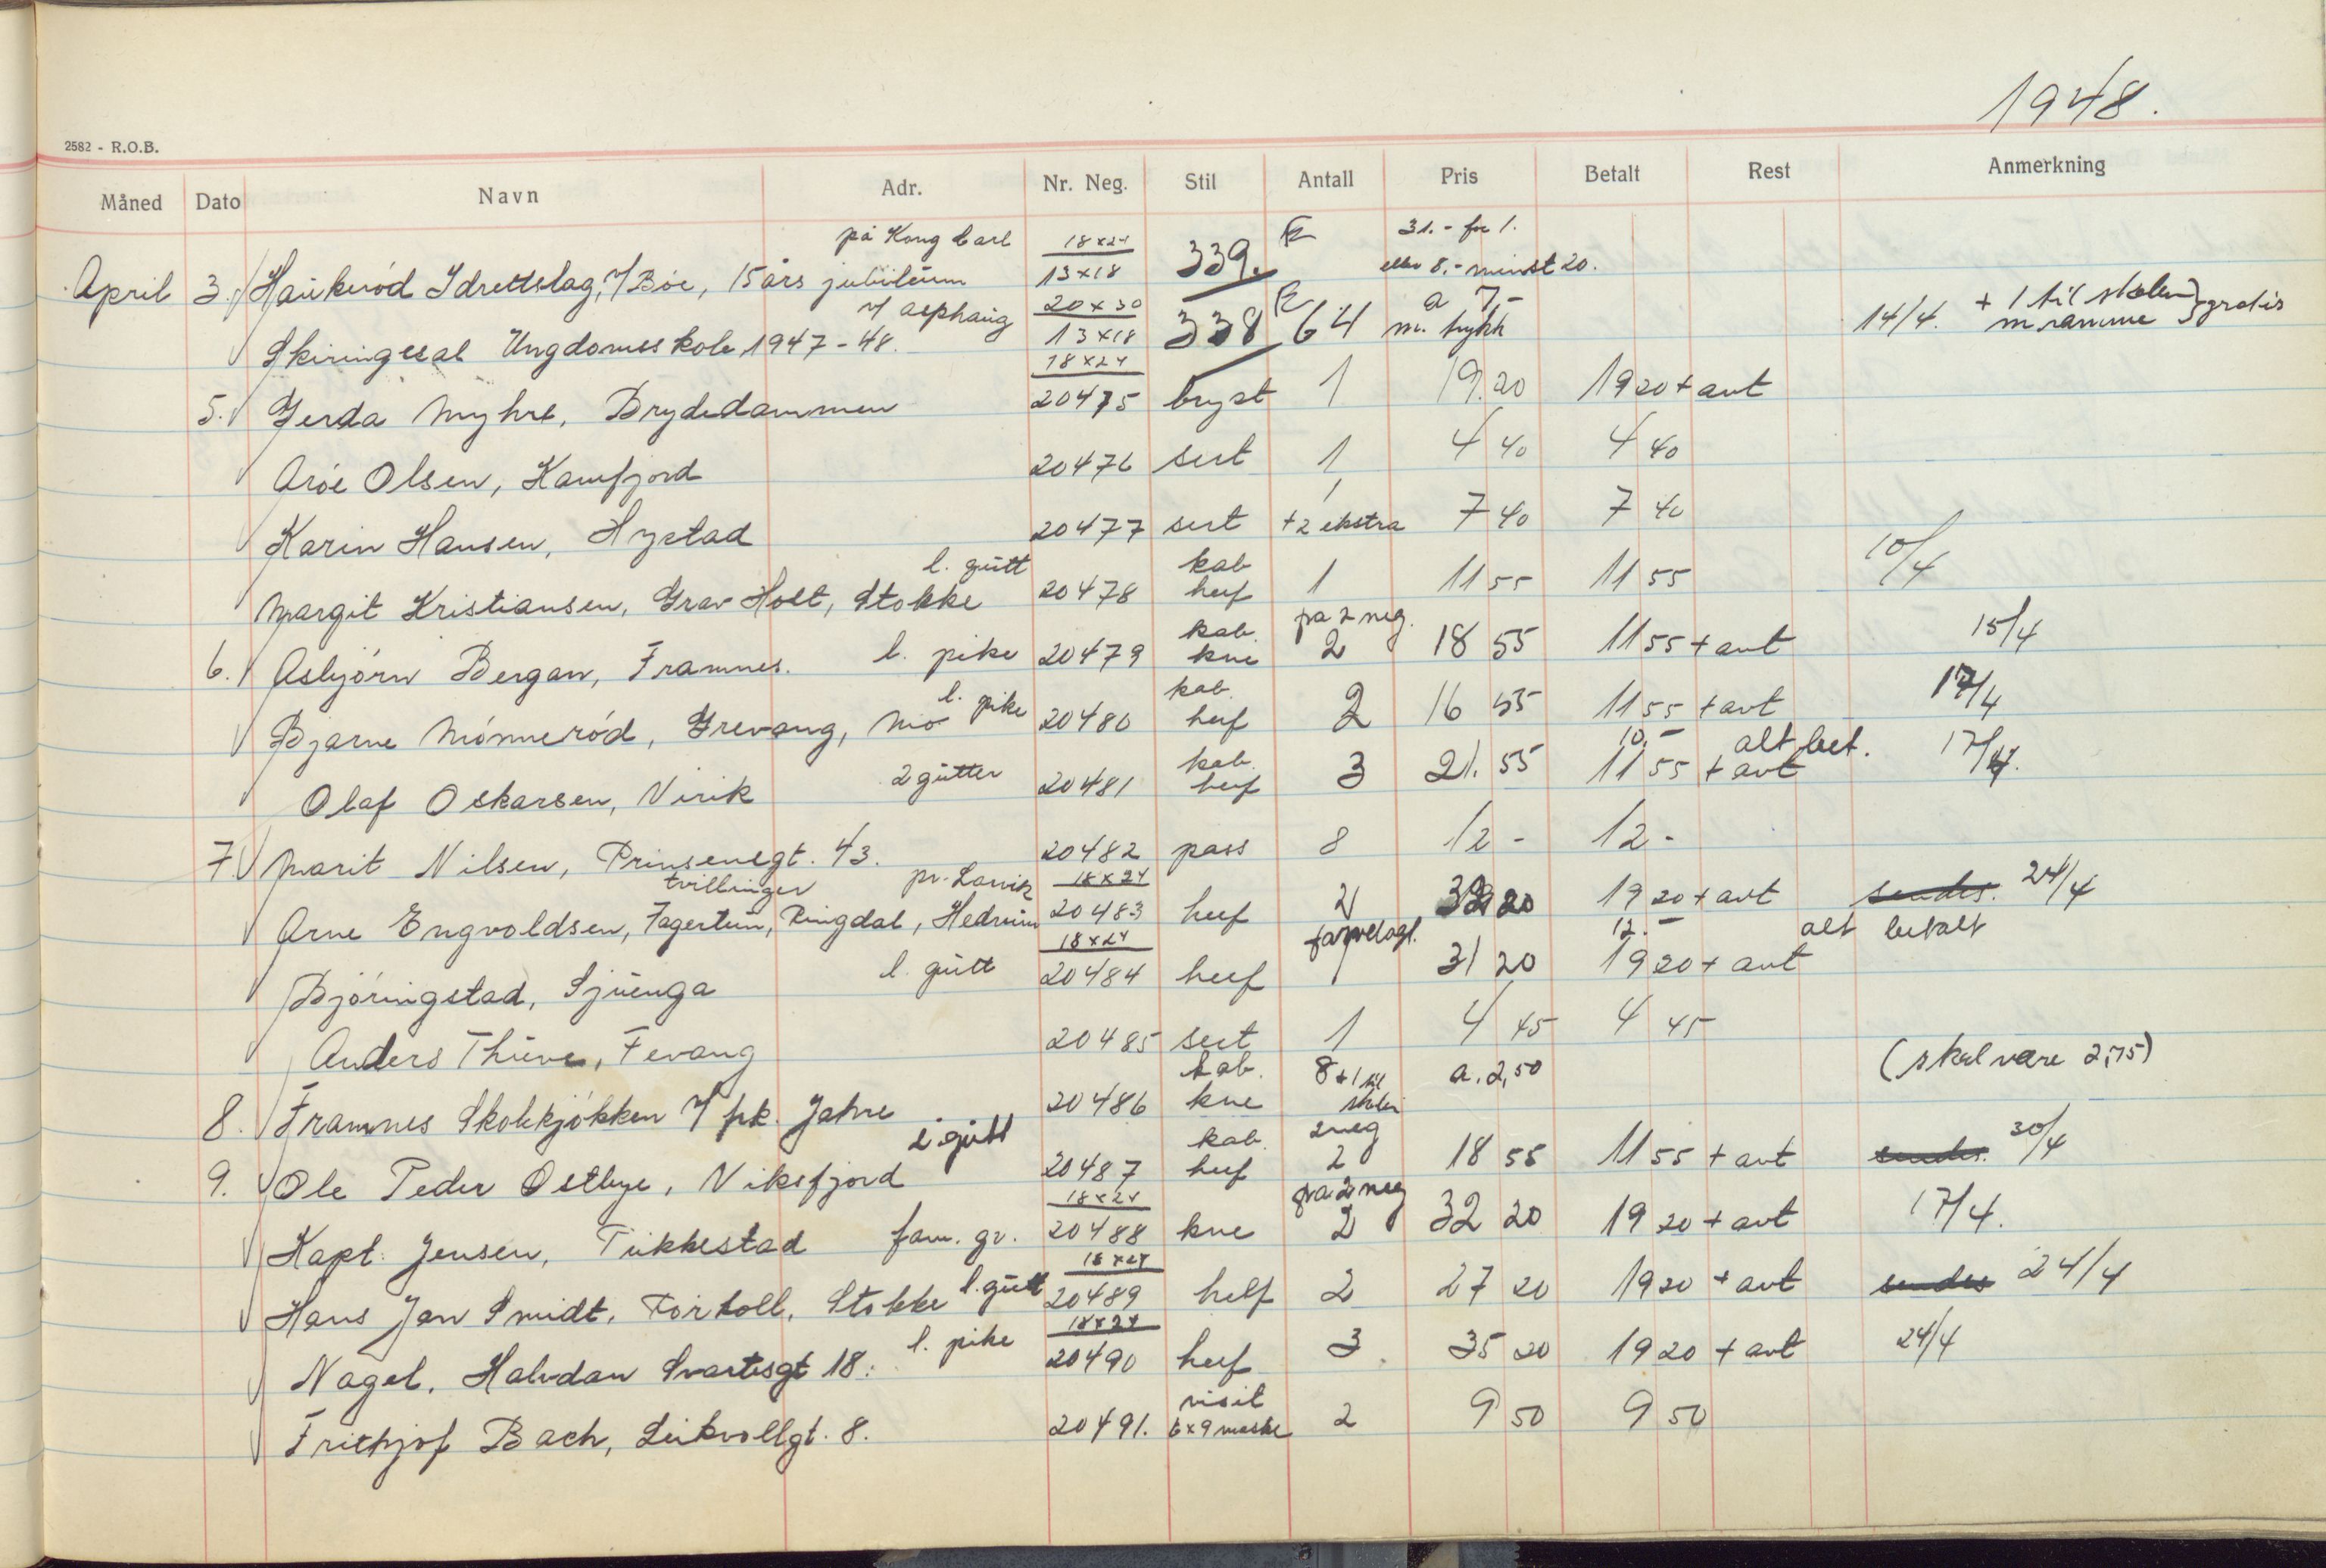 1948.
2582 - R.O.B.
Måned Dato Navn Adr. Nr. Neg. Stil Antall Pris Betalt Rest Anmerkning
på Kong Carl 18x24 31.- for 1.
April 3. Haukerød Idrettslag, v/ Bøe, 15 års jubileum 13x18 339. eller 8.- minst 20.
v/ asphaug 20x30 a 7,- + 1 til skolen
Skiringssal Ungdomsskole 1947-48. 13x18 338 64 m. trykk 14/4. m ramme } gratis
18x24
5. Gerda Myhre, Brydedammen 20475 bryst 1 19.20 19 20 + avt
Arøe Olsen, Kamfjord 20476 sert 1 4 40 4 40
1
Karin Hansen, Hystad 20477 sert +2 ekstra 7 40 7 40
l. gutt kab
Margit Kristiansen, Grav Holt, Stokke 20478 helf 1 11 55 11 55 10/4
kab. på 2 neg.
6. Asbjørn Bergan, Framnes. l. pike 20479 kne 2 18 55 11 55 + avt 15/4
l. pike kab.
Bjarne Mønnerød, Grevang, Mo 20480 helf 2 16 55 11 55 + avt 17/4
kab. 10.- alt bet.
Olaf Oskarsen, Virik 2 gutter 20481 helf 3 21. 55 11 55 + avt 17/4.
7. Marit Nilsen, Prinsensgt. 43. 20482 pass 8 12 - 12 -
tvillinger pr. Larvik 18x24
Arne Engvoldsen, Fagertun, Ringdal, Hedrum 20483 helf 2 20 19 20 + avt sendes. 24/4
18x24 farvelagt. 12.- alt betalt
Bjøringstad, Sjuenga l. gutt 20484 helf 1 31 20 19 20 + avt
Anders Thuve, Fevang 20485 sert 1 4 45 4 45
kab. 8 + 1 til a. 2,50 (skal være 2,75)
8. Framnes Skolekjøkken v/ frk. Jahre 20486 kne skolen
gutt kab. 2 neg
9. Ole Peder Østbye, Viksfjord 20487 helf 2 18 55 11 55 + avt sendes. 30/4
18x24 på 2 neg
Kapt. Jensen, Tukkestad fam. gr. 20488 kne 2 32 20 19 20 + avt 17/4.
18x24
Hans Jan Smidt, Fortoll, Stokke l. gutt 20489 helf 2 27 20 19 20 + avt sendes 24/4
18x24
Nagel, Halvdan Svartesgt 18. l. pike 20490 helf 3 35 20 19 20 + avt 24/4
visit
Frithjof Bach, Leikvollgt. 8. 20491. 6x9 maske 2 9 50 9 50